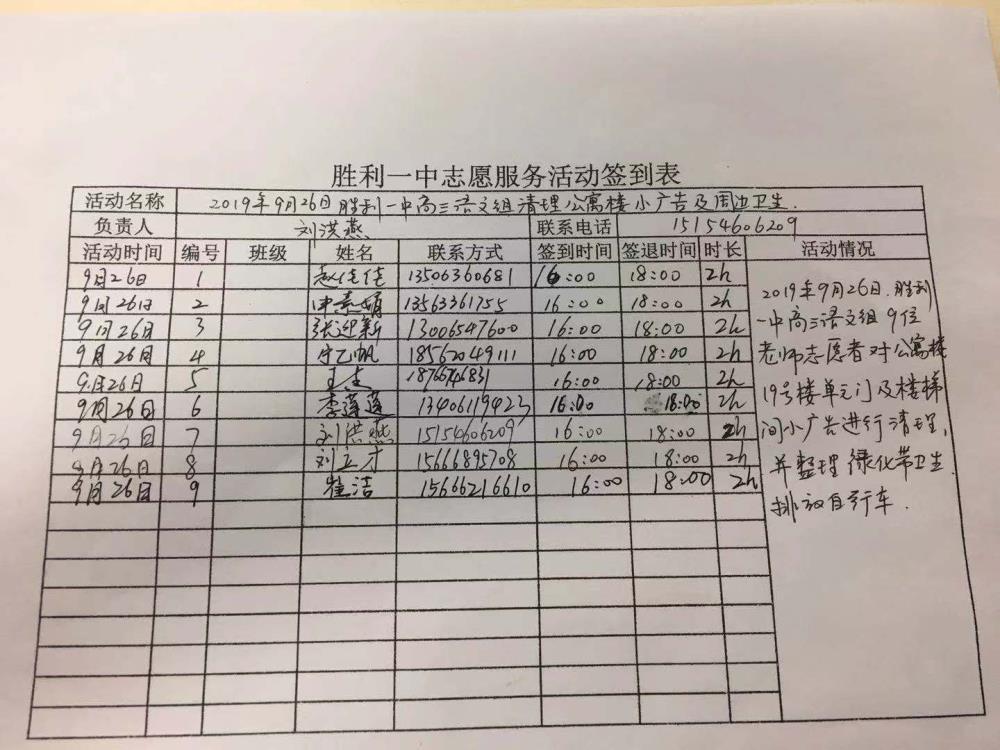 胜利一中志愿服务活动签到表
活动名称 2019年9月26日胜利一中高三语文组清理公寓楼小广告及周边卫生.
负责人 刘洪燕 联系电话 15154606209
活动时间 编号 班级 姓名 联系方式 签到时间 签退时间 时长 活动情况
9月26日 1 赵佳佳 13506360681 16:00 18:00 2h
9月26日 2 13563361755 16:00 18:00 2h
9月26日 3 张迎新 13006547600 16:00 18:00 2h
9月26日 4 18562049111 16:00 18:00 2h
9月26日 5 16:00 18:00 2h
9月26日 6 李莲莲 13406119423 16:00 18:00 2h
9月26日 7 刘洪燕 15154606209 16:00 18:00 2h
9月26日 8 刘立才 15666895708 16:00 18:00 2h
9月26日 9 崔洁 15666216610 16:00 18:00 2h
2019年9月26日,胜利
一中高三语文组9位
老师志愿者对公寓楼
19号楼单元门及楼梯
间小广告进行清理,
并整理绿化带卫生.
排放自行车.